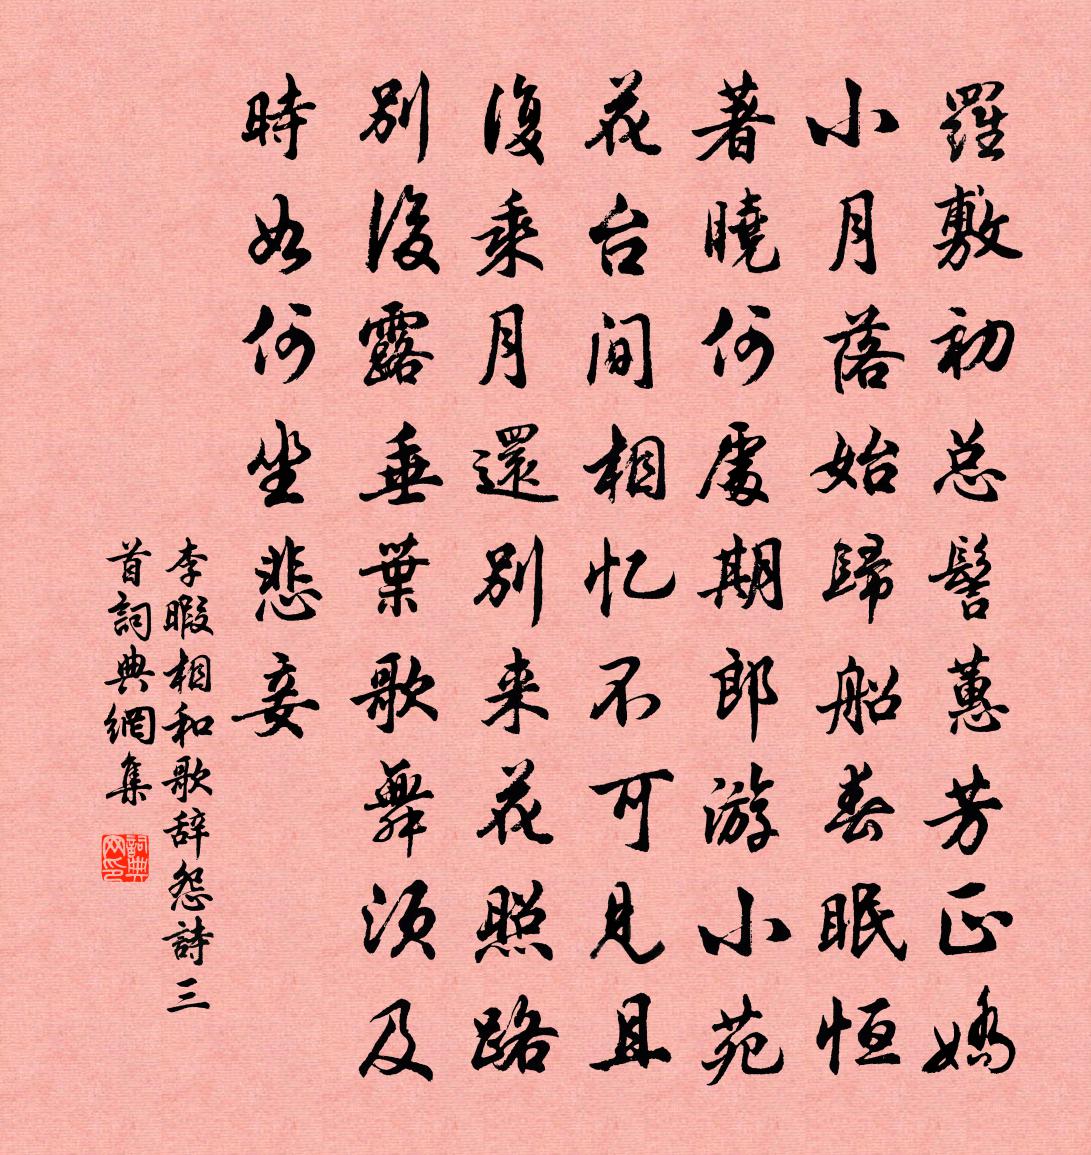 羅敷初总髻蕙芳正嬌
小月落始歸船春眠恒
著曉何處期郎游小苑
花台間相忆不可見且
復乘月還別来花照路
別後露垂葉歌舞須及
時如何坐悲妾
李暇相和歌辞怨詩三
首詞典網集
詞典网印